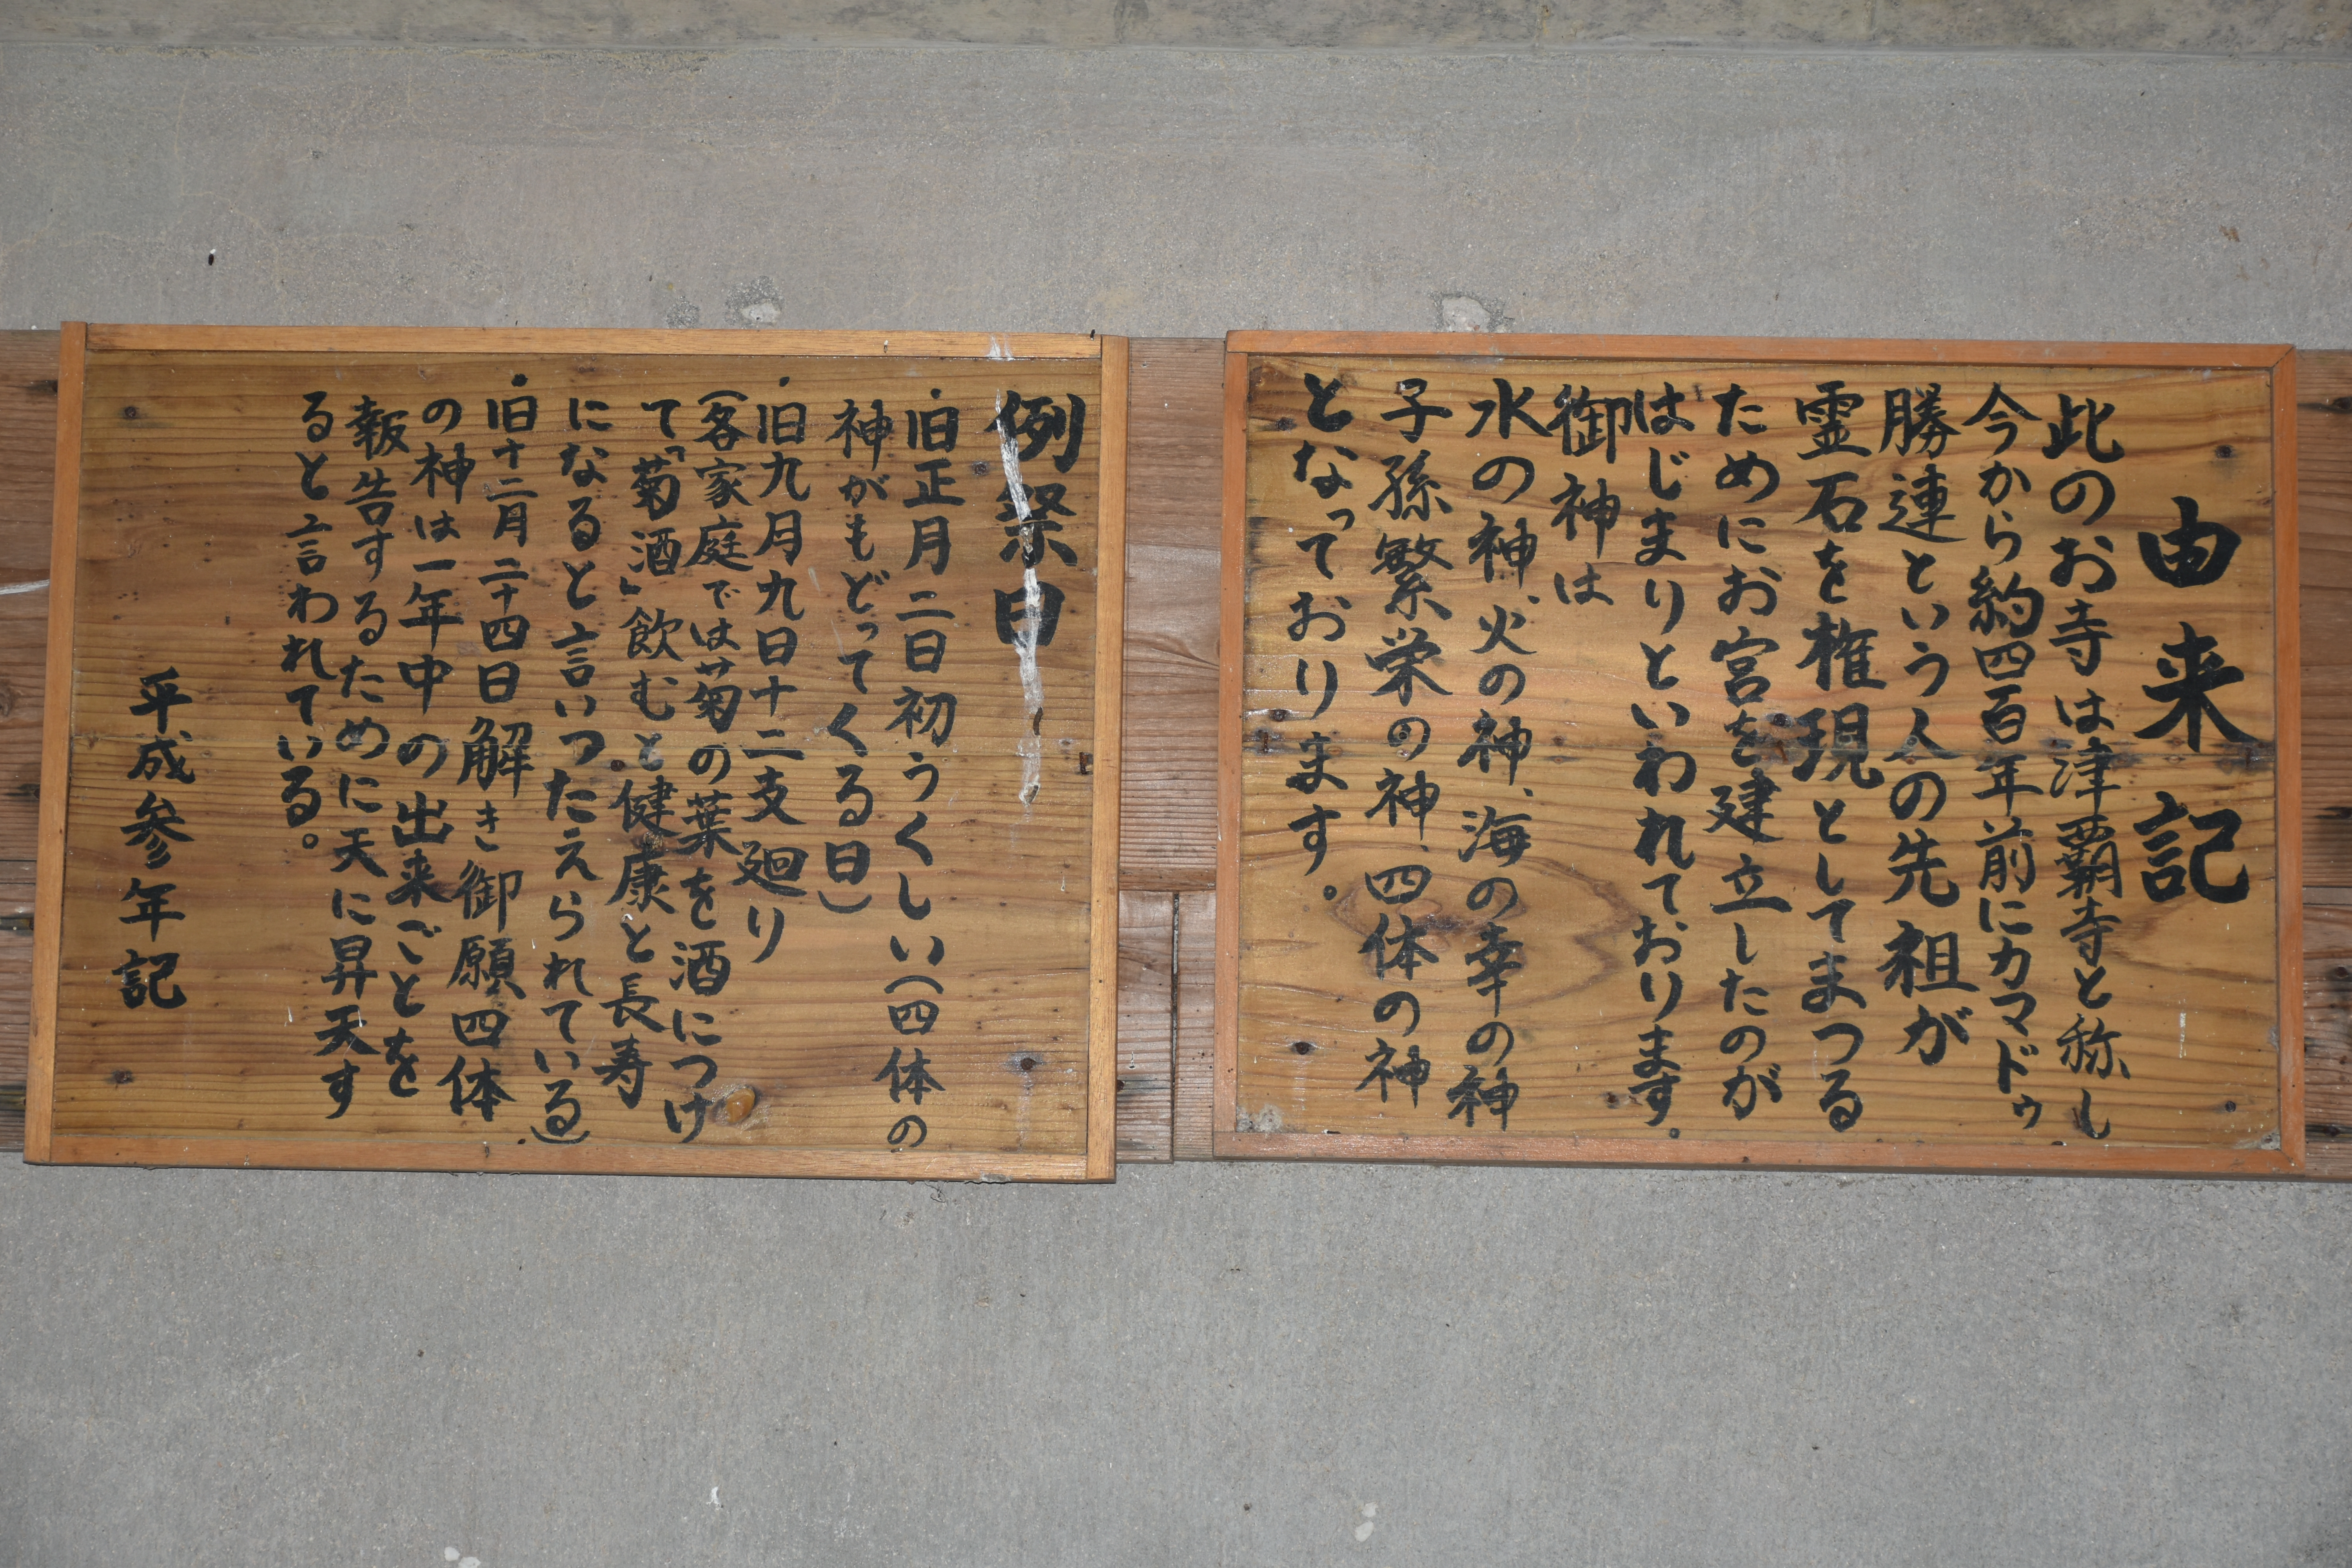 由来記
此のお寺は津覇寺と称し
今から約四百年前にカマドゥ
勝連という人の先祖が
霊石を権現としてまつる
ためにお宮を建立したのが
はじまりといわれております。
御神は
水の神、火の神、海の幸の神
子孫繁栄の神、四体の神
となっております。
例祭日
・旧正月二日初うくしい(四体の
神がもどってくる日)
・旧九月九日十二支廻り
(客家庭では菊の葉を酒につけ
て「菊酒」飲むと健康と長寿
になると言いつたえられている)
・旧十二月二十四日解き御願四体
の神は一年中の出来ごとを
報告するために天に昇天す
ると言われている。
平成参年記